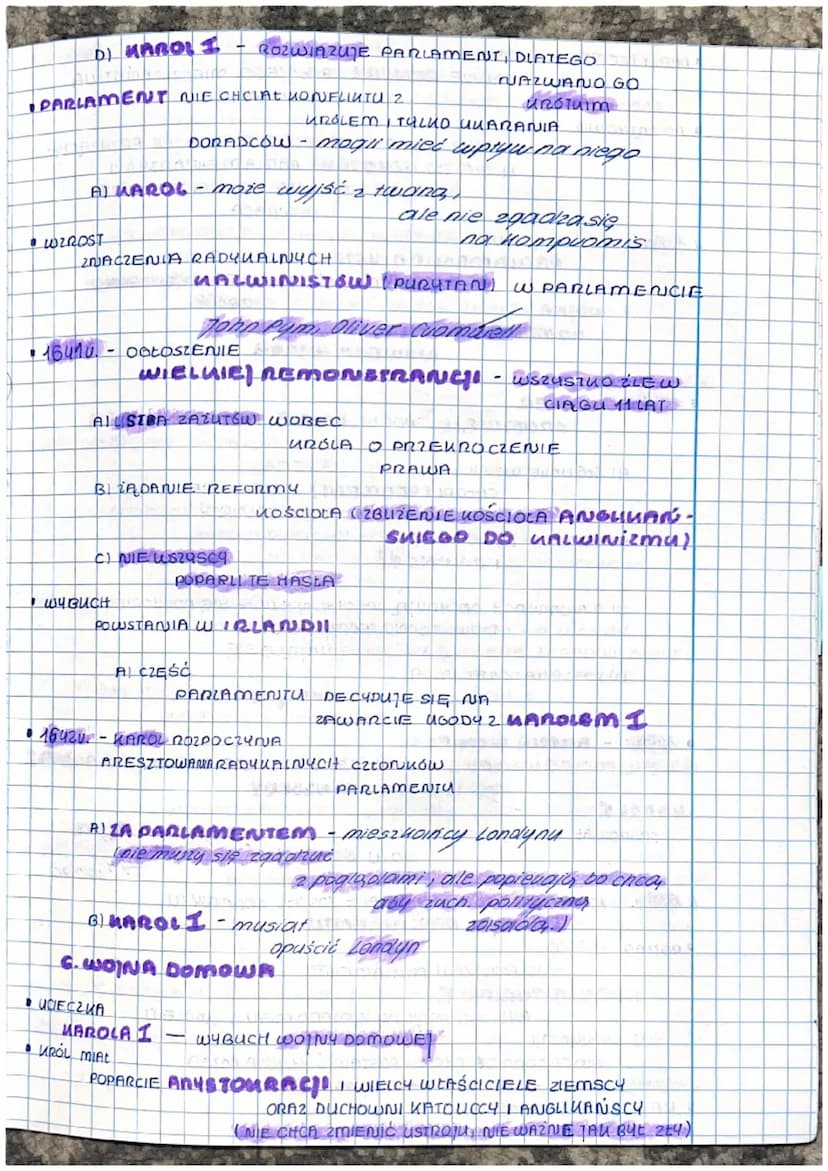 D) KAROL I - ROZWIĄZUJE PARLAMENT, DLATEGO
NAZWANO GO
KRÓTKIM
• PARLAMENT NIE CHCIAŁ KONFLIKTU Z
KRÓLEM, TYLKO UKARANIA
DORADCÓW - mogli mieć wpływ na niego
A) KAROL - może wyjść z twarzą,
ale nie zgadza się
na kompromis
• WZROST
ZNACZENIA RADYKALNYCH
KALWINISTÓW (PURYTAN) W PARLAMENCIE
John Pym, Oliver Cromwell
• 1641r. - OGŁOSZENIE
WIELKIEJ REMONSTRANCJI - WSZYSTKO ŹLE W
CIĄGU 11 LAT
A) LISTA ZARZUTÓW WOBEC
KRÓLA O PRZEKROCZENIE
PRAWA
B) ŻĄDANIE REFORMY
KOŚCIOŁA (ZBLIŻENIE KOŚCIOŁA ANGLIKAŃ-
SKIEGO DO KALWINIZMU)
C) NIE WSZYSCY
POPARLI TE HASŁA
• WYBUCH
POWSTANIA W IRLANDII
A) CZĘŚĆ
PARLAMENTU DECYDUJE SIĘ NA
ZAWARCIE UGODY Z KAROLEM I
• 1642r. - KAROL ROZPOCZYNA
ARESZTOWANIA RADYKALNYCH CZŁONKÓW
PARLAMENTU
A) ZA PARLAMENTEM - mieszkańcy Londynu
(nie muszą się zgadzać
z poglądami, ale popierają, bo chcą,
aby zach. polityczną
zasadą.)
B) KAROL I - musiał
opuścić Londyn
6. WOJNA DOMOWA
• UCIECZKA
KAROLA I — WYBUCH WOJNY DOMOWEJ
• KRÓL MIAŁ
POPARCIE ARYSTOKRACJI I WIELCY WŁAŚCICIELE ZIEMSCY
ORAZ DUCHOWNI KATOLICCY I ANGLIKAŃSCY
(NIE CHCĄ ZMIENIĆ USTROJU, NIE WAŻNIE JAK BYŁ ZŁY)